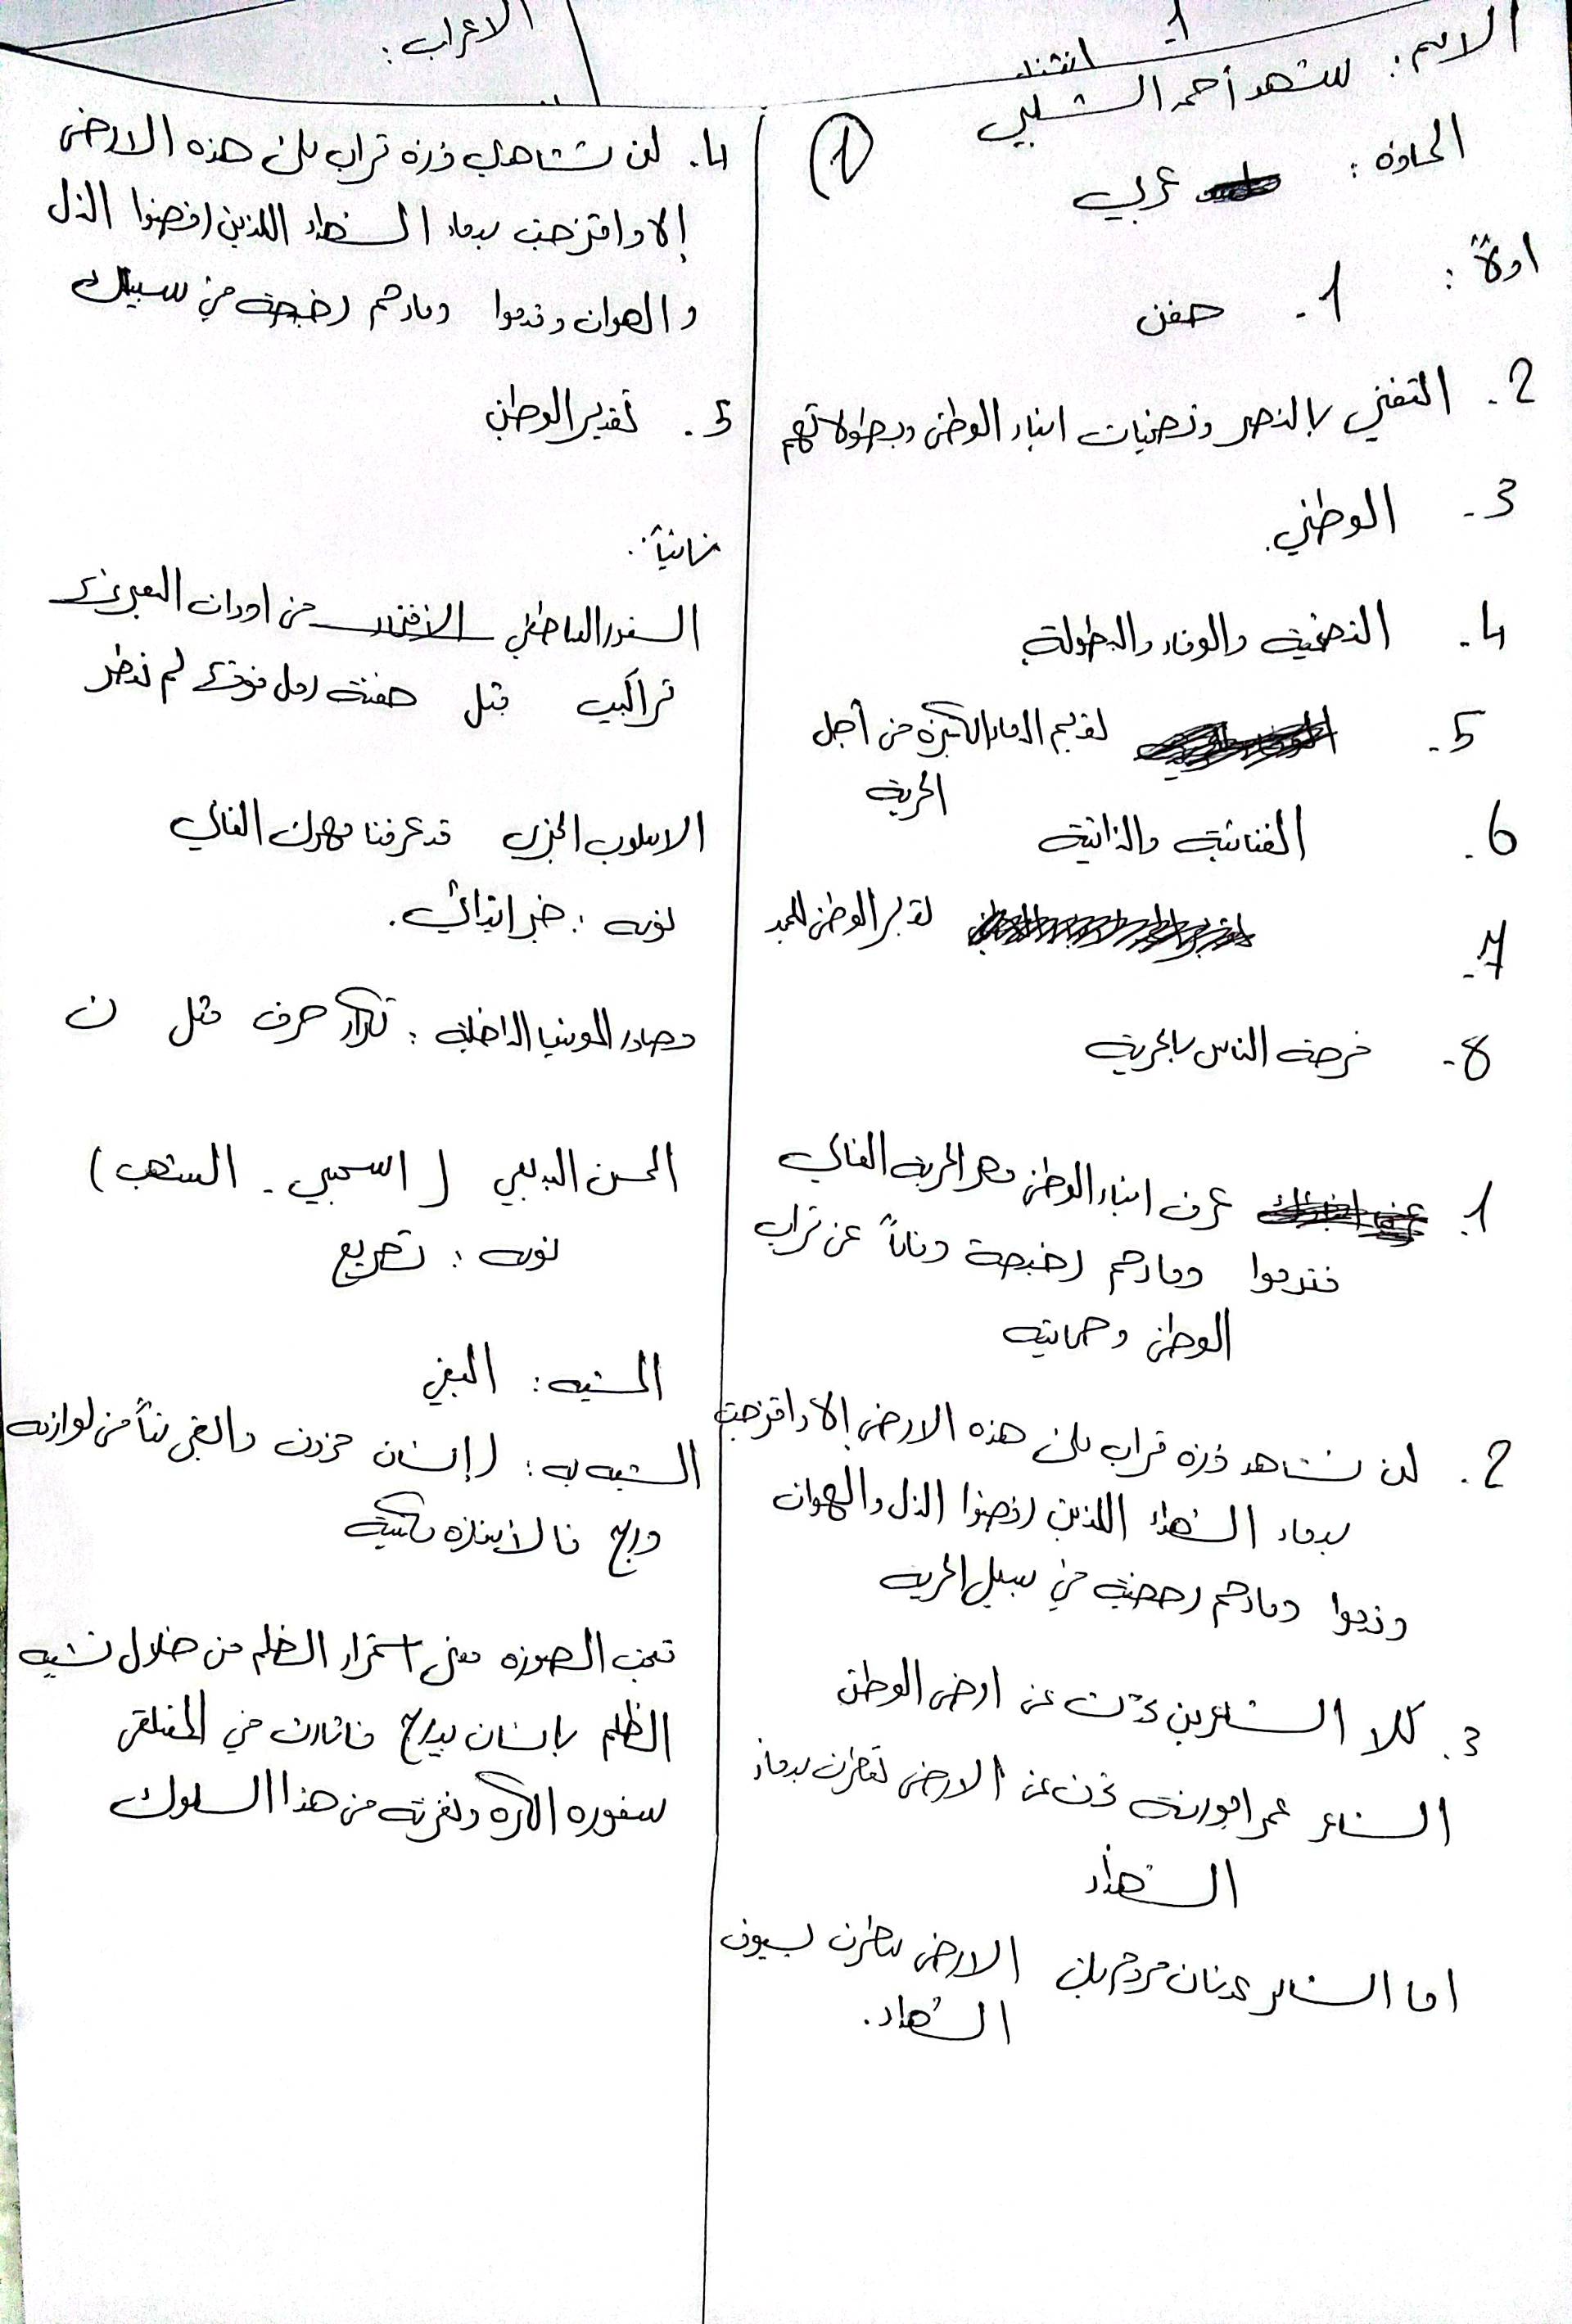 الاعراب:
1-
الاسم: شهد أحمد الشلبي
المادة: عربي
(1)
اولاً:
1- حفن
2- التغني بالنصر وتضحيات ابناء الوطن وبطولاتهم
3- الوطني.
4- التضحية والوفاء والبطولة
5- تقديم الدماء الكثيرة من أجل
الحرية
6- الغنائية والذاتية
7- تقدير الوطن للمجد
8- فرحة الناس بالحرية
1. عرف ابناء الوطن مهر الحرية الغالي
فقدموا دماءهم رخيصة دفاعاً عن تراب
الوطن وحمايته
2. لن نشاهد ذرة تراب على هذه الارض إلا وامتزجت
بدماء الشهداء اللذين رفضوا الذل والهوان
وقدموا دماءهم رخيصة في سبيل الحرية
3. كلا الشاعرين تحدث عن ارض الوطن
الشاعر عمر ابوريشة تحدث عن الارض تعطرت بدماء
الشهداء
اما الشاعر عدنان مردم بك الارض بسيوف
الشهداء.
4. لن تشاهدي ذرة تراب على هذه الارض
إلا وامتزجت بدماء الشهداء اللذين رفضوا الذل
والهوان وقدموا دماءهم رخيصة في سبيلك
5. تقدير الوطن
ثانياً:
الشعور العاطفي الافتخار من ادوات التعبير عنه
تراكيب مثل حفنة رمل فوقك لم تعطر
الاسلوب الخبري قد عرفنا مهرك الغالي
نوعه: خبر ابتدائي.
مصادر الموسيقا الداخلية: تكرار حرف مثل ن
المحسن البديعي (اسحبي - الشهب)
نوعه: تصريع
المشبه: البغي
المشبه به: (إنسان محذوف وابقى شيئاً من لوازمه
درج فالاستعارة مكنية
تجنب الصورة معنى استمرار الظلم من خلال تشبيه
الظلم بإنسان يدرج فاثارت في المتلقي
شعوره الكره ونفرته من هذا السلوك